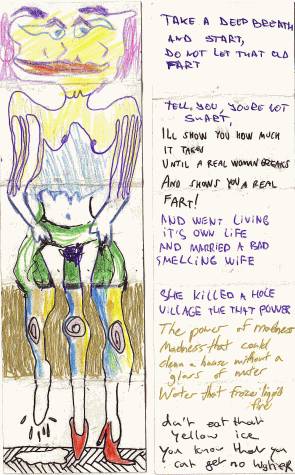 TAKE A DEEP BREATH
AND START,
DO NOT LET THAT OLD
FART
TELL YOU, YOU'RE NOT
SMART,
I'LL SHOW YOU HOW MUCH
IT TAKES
UNTIL A REAL WOMAN BREAKS
AND SHOWS YOU A REAL
FART!
AND WENT LIVING
IT'S OWN LIFE
AND MARRIED A BAD
SMELLING WIFE
SHE KILLED A HOLE
VILLAGE THAT POWER
The power of madness
Madness that could
clean a house without a
glass of water
Water that froze liquid
fire
don't eat that
yellow ice
You know that you
can't get no